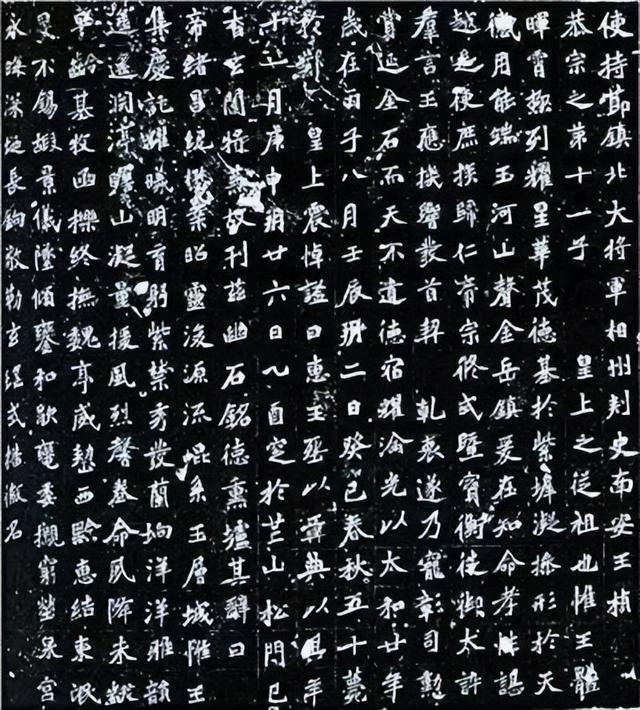 使持節鎮北大將軍相州刺史南安王楨
恭宗之第十一子　皇上之從祖也惟王體
暉霄極列耀星華茂德基於紫墀凝操形於天
儀用能端玉河山聲金岳鎮爰在知命孝性諶
越是使庶族歸仁帝宗攸式暨寶衡徙御太訐
羣言王應機響發首契　乾衷遂乃寵彰司勳
賞延金石而天不遺德宿耀淪光以太和廿年
歲在丙子八月壬辰朔二日癸巳春秋五十薨
於鄴　皇上震悼謚曰惠王葬以彝典以其年
十一月庚申朔廿六日乙酉窆於芒山松門已
杳玄闥將蕪故刊茲幽石銘德熏壚其辭曰
帝緒昌紀懋業昭靈浚源流崐系玉層城惟王
集慶託耀曦明育躬紫禁秀發蘭坰洋洋雅韻
遙遙淵渟瞻山凝量援風烈馨卷命夙降未黻
早齡基牧函櫟終撫魏亭威整西黔惠結東氓
旻不錫嘏景儀墜傾鑾和歇轡委櫬窮塋泉宮
永晦深埏長敬勒玄瑤式播徽名